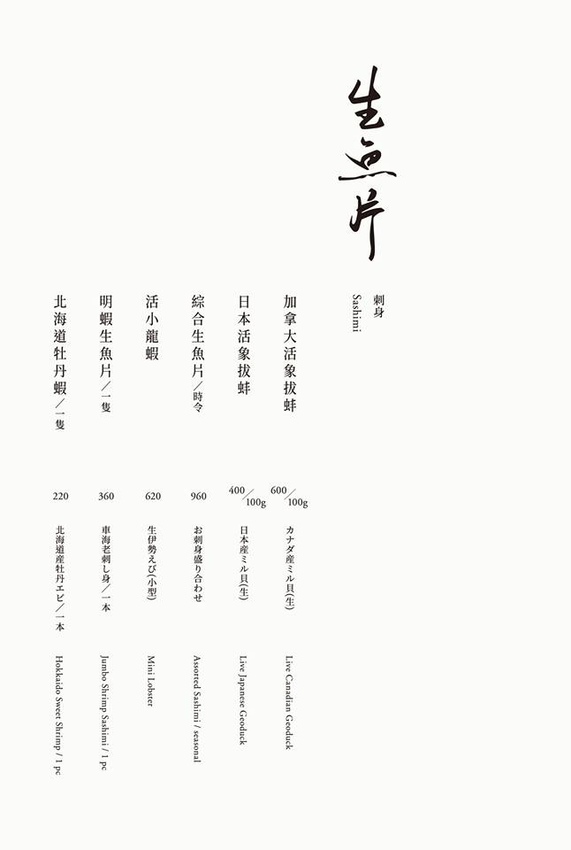 生魚片
刺身
Sashimi
加拿大活象拔蚌
600/100g
カナダ産ミル貝(生)
Live Canadian Geoduck
日本活象拔蚌
400/100g
日本産ミル貝(生)
Live Japanese Geoduck
綜合生魚片/時令
960
お刺身盛り合わせ
Assorted Sashimi / seasonal
活小龍蝦
620
生伊勢えび(小型)
Mini Lobster
明蝦生魚片/一隻
360
車海老刺し身/一本
Jumbo Shrimp Sashimi / 1 pc
北海道牡丹蝦/一隻
220
北海道産牡丹エビ/一本
Hokkaido Sweet Shrimp / 1 pc